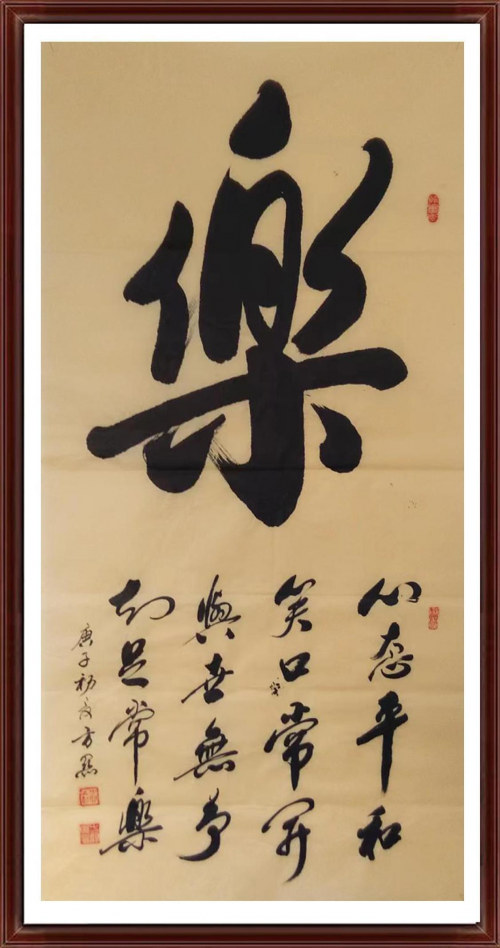 樂
心态平和
笑口常开
與世無争
知足常樂
庚子初夏方